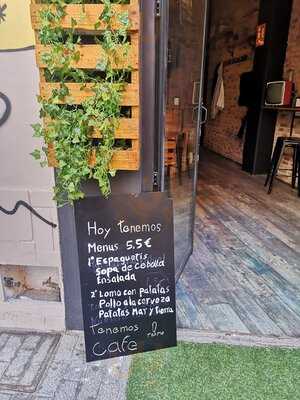 Hoy tenemos
Menus 5.5€
1º Espaguetis
Sopa de Cebolla
Ensalada
2º Lomo con patatas
Pollo a la cerveza
Patatas Mar y tierra
tenemos
Cafe